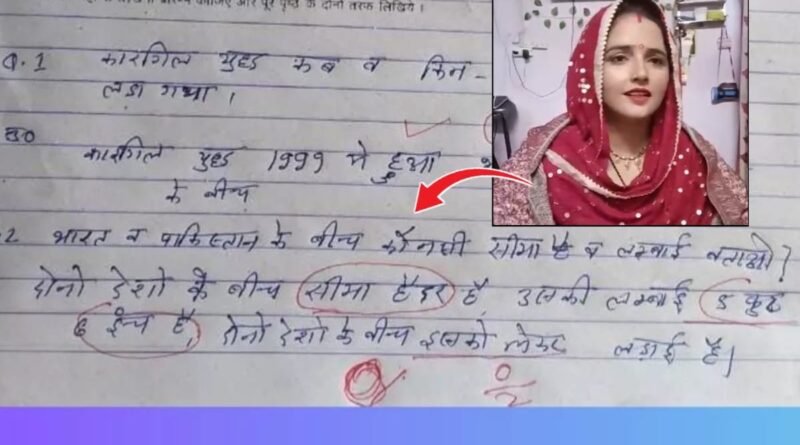 कीजिए और पूरे पृष्ठ के दोनों तरफ लिखिये ।
Q.1 कारगिल युद्ध कब व किन-
लड़ा गया ।
उ०
कारगिल युद्ध 1999 मे हुआ
के बीच
2 भारत व पाकिस्तान के बीच कौनसी सीमा है व लम्बाई बताओ?
दोनो देशो के बीच सीमा हैदर है, उसकी लम्बाई 5 फुट
6 इंच है, दोनो देशो के बीच इसको लेकर लड़ाई है।
0
0/2